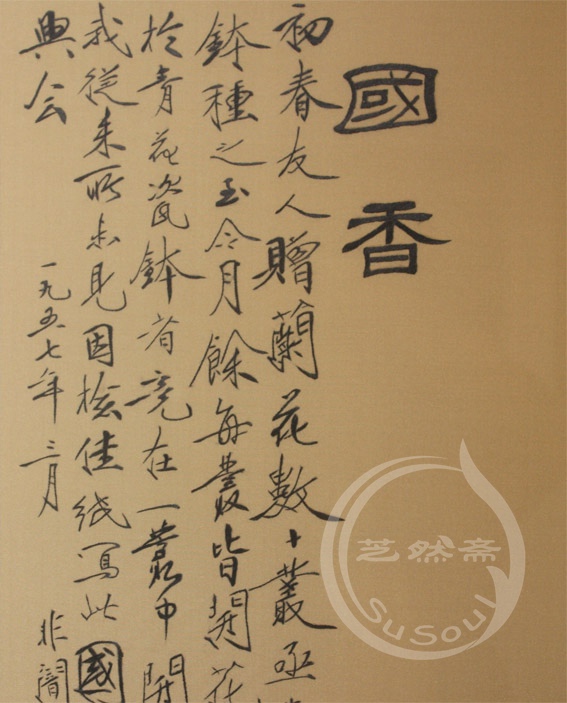 國香
初春友人贈蘭花數十叢亟
鉢種之至今月餘每叢皆開花
於青花瓷鉢者竟在一叢中開
我從來所未見因檢佳紙寫此國
興会
一九五七年三月 非闇
芝然斋
SuSoul